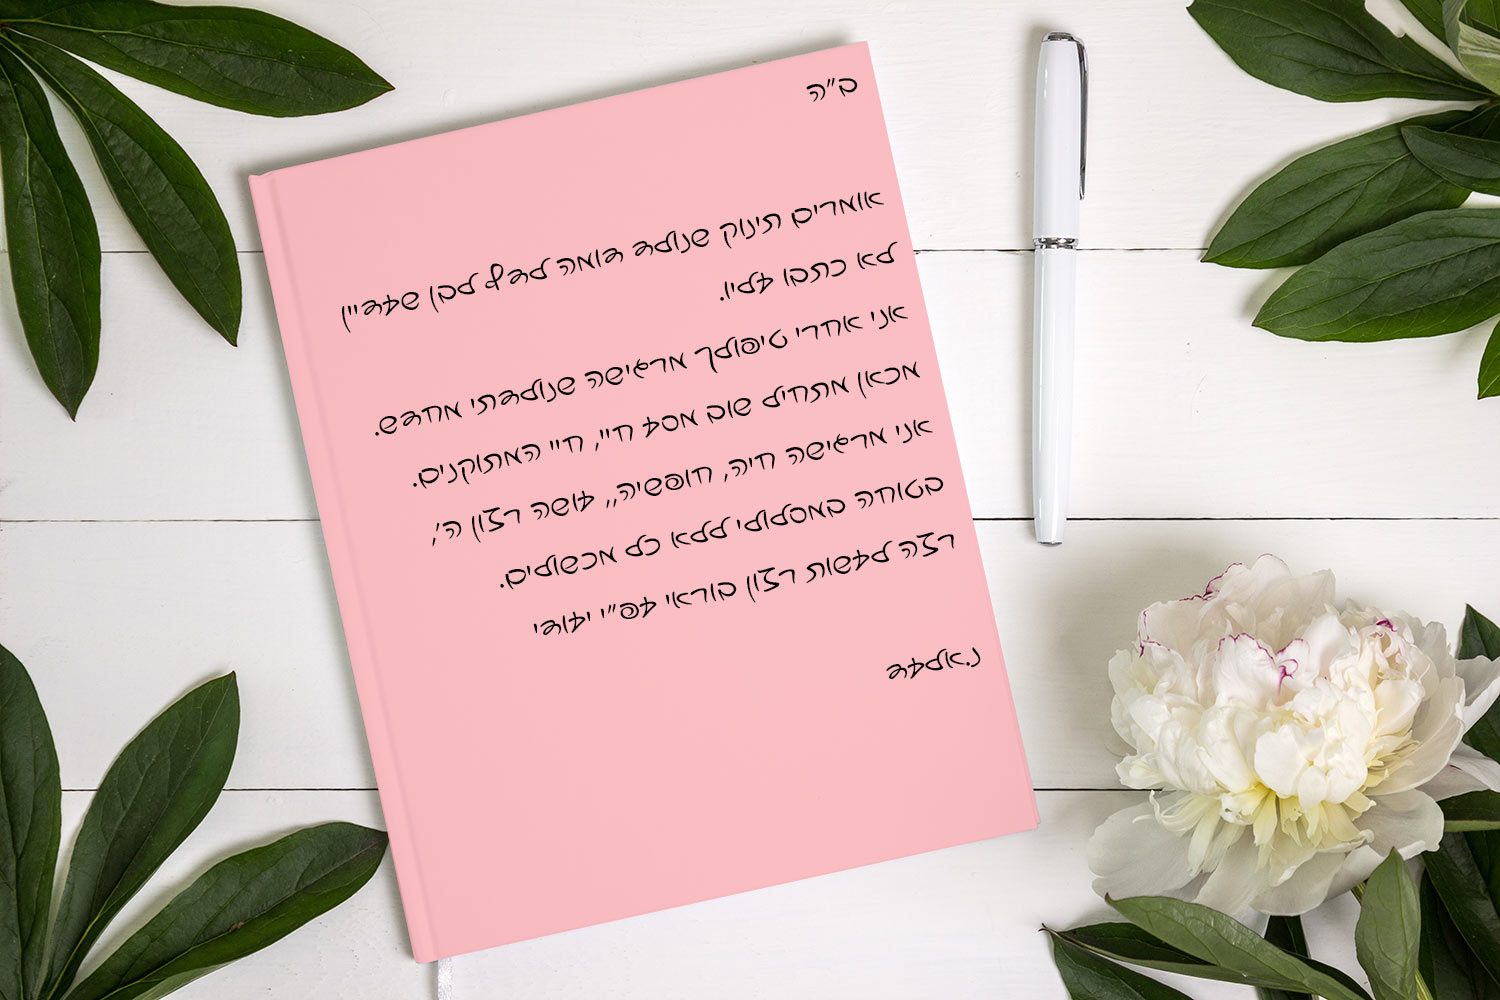 ב"ה
אומרים תינוק שנולד דומה לדף לבן שעדיין
לא כתבו עליו.
אני אחרי טיפולך מרגישה שנולדתי מחדש.
מכאן מתחיל שוב מסע חיי, חיי המתוקנים.
אני מרגישה חיה, חופשיה,, עושה רצון ה',
בטוחה במסלולי ללא כל מכשולים.
רצה לעשות רצון בוראי עפ"י יעודי
נ.אלעד